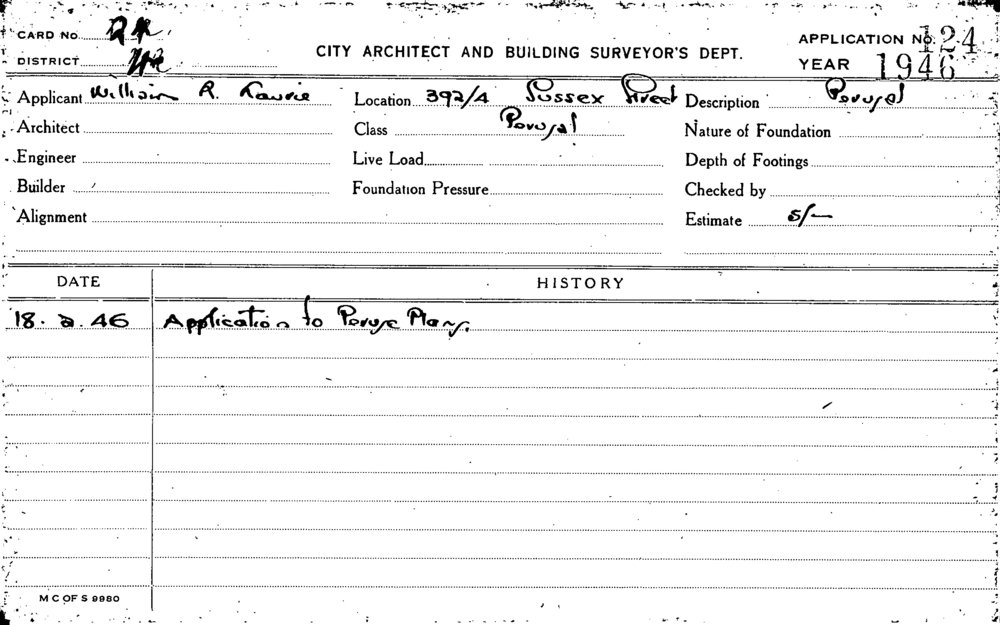 CARD No.
APPLICATION No. 124
DISTRICT
CITY ARCHITECT AND BUILDING SURVEYOR'S DEPT.
YEAR 1946
Applicant William R. Lawrie Location 392/4 Sussex Street Description Perusal
Architect Class Perusal Nature of Foundation
Engineer Live Load Depth of Footings
Builder Foundation Pressure Checked by
Alignment Estimate 5/-
DATE HISTORY
18. 2. 46 Application to Peruse Plans.
M C OF S 9980